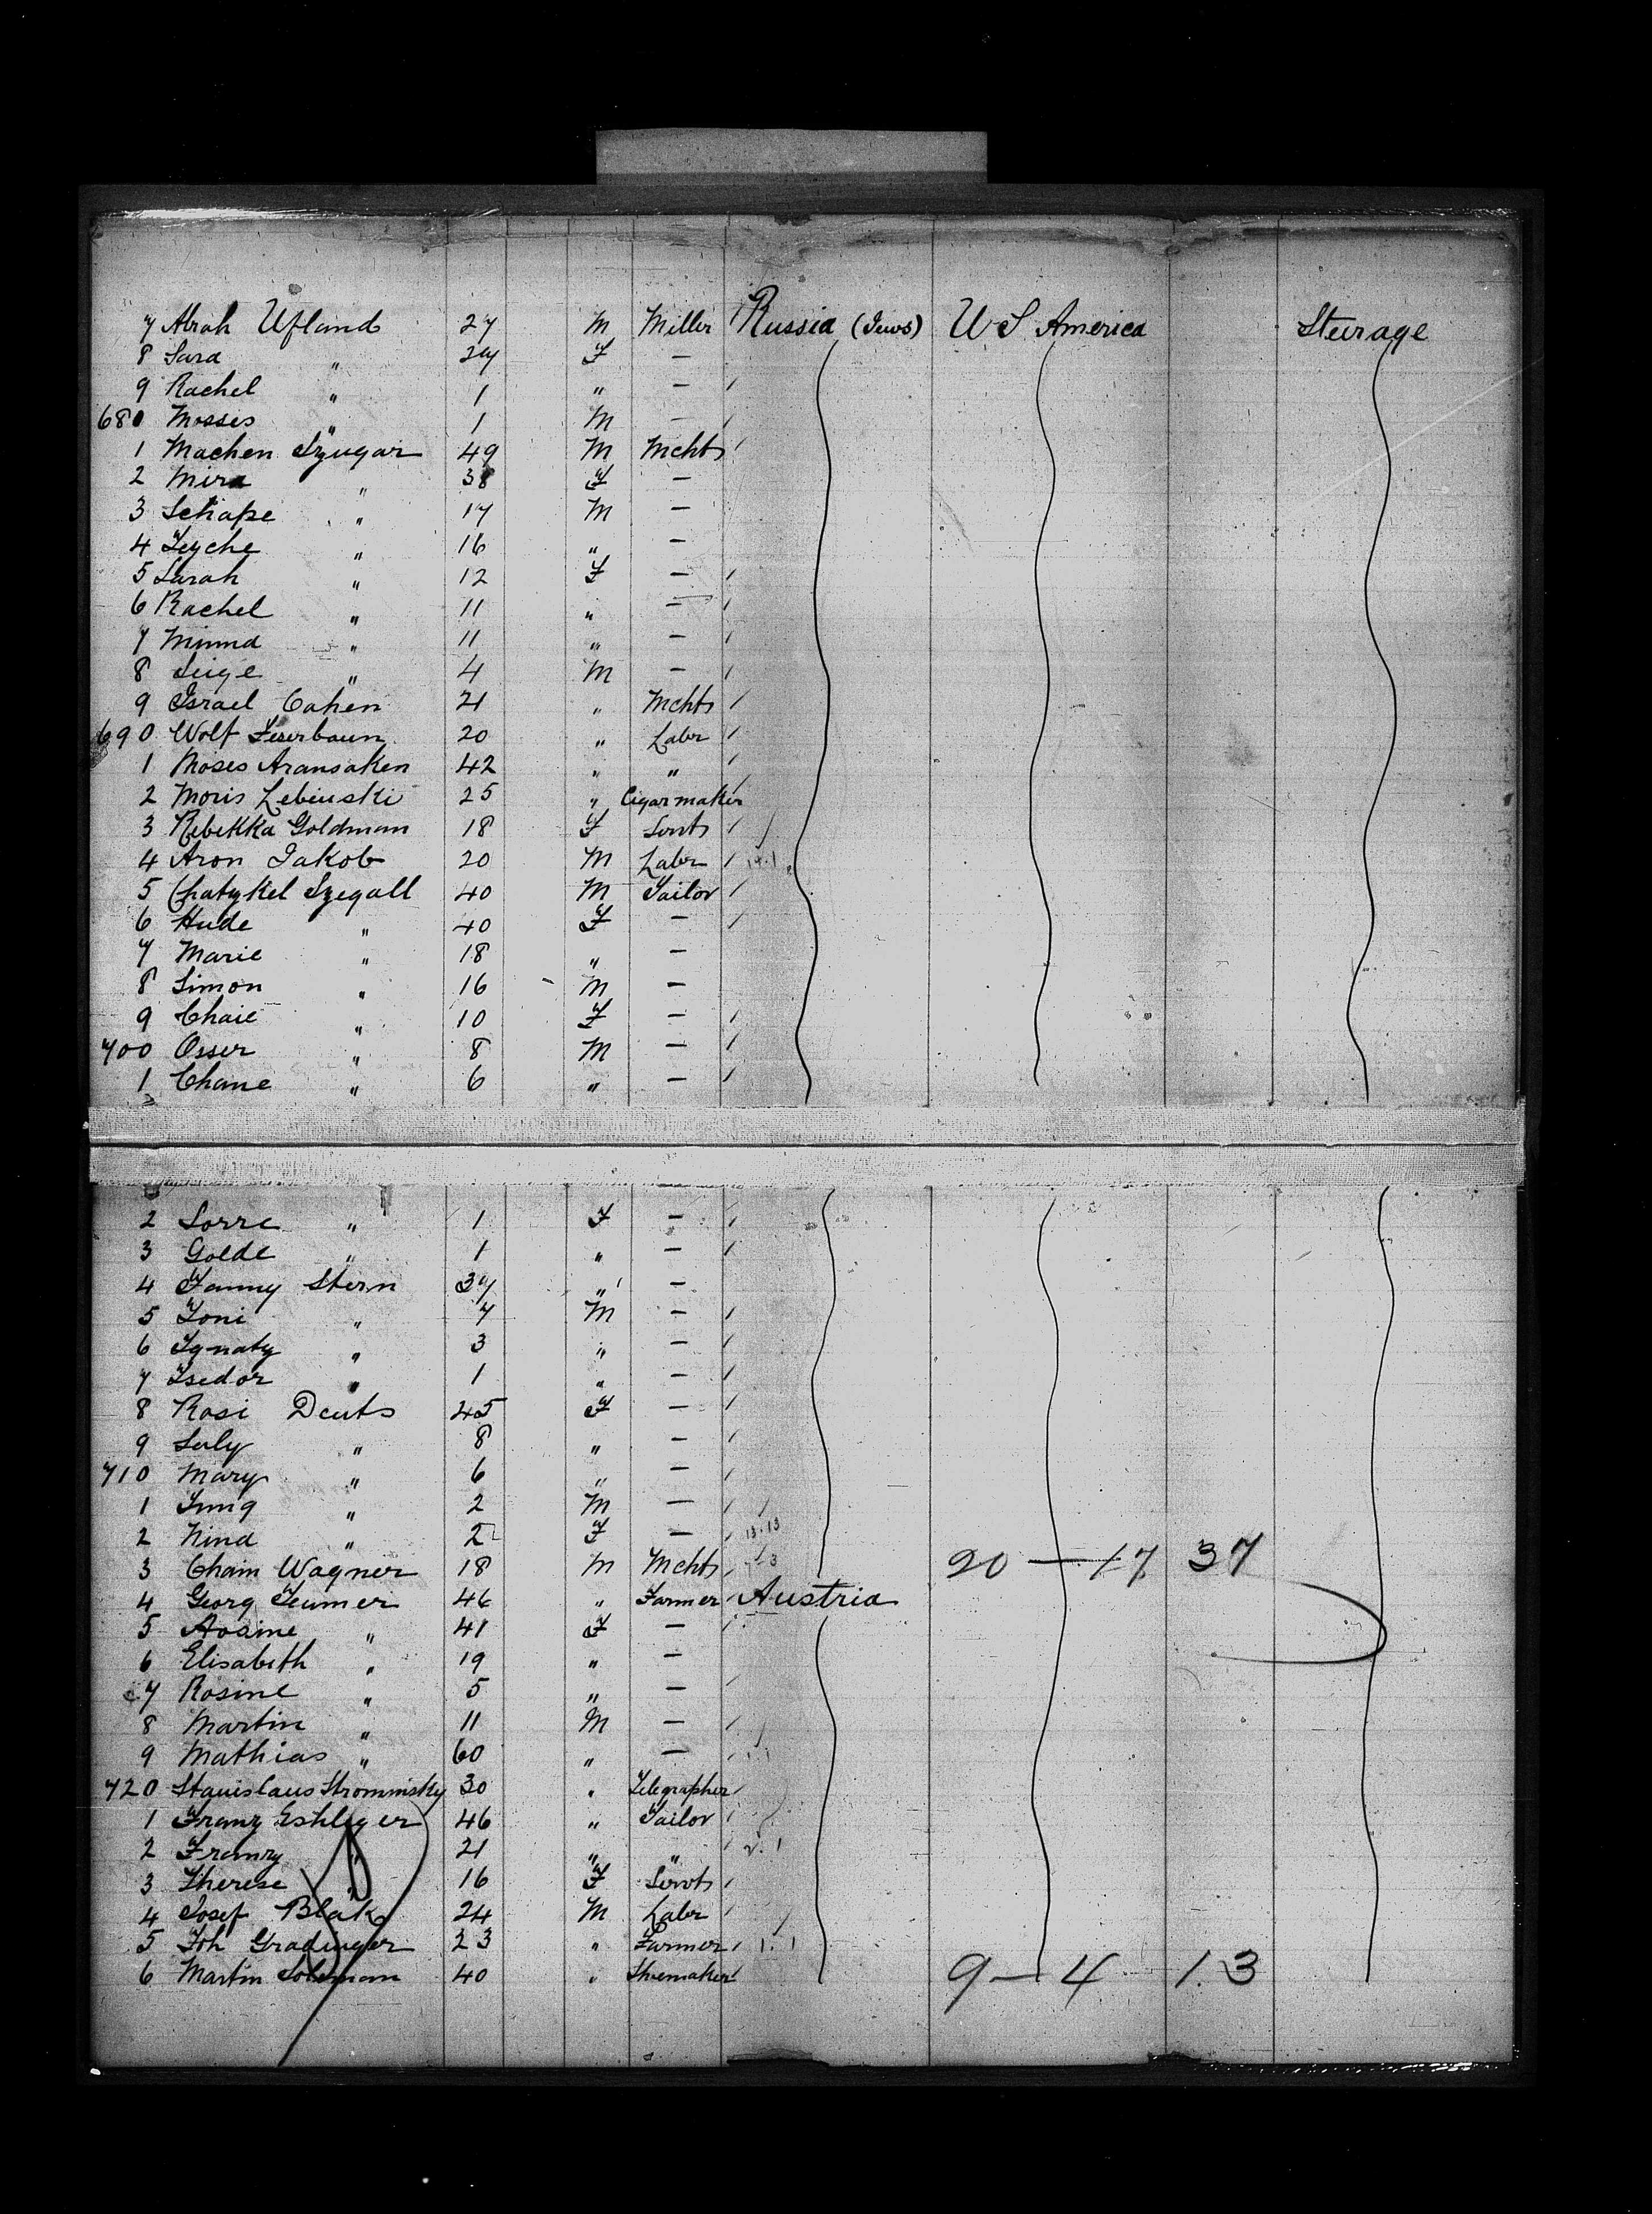 7 Abrah Ufland 27 M Miller Russia (Jews) U S America Steerage
8 Sara " 24 F —
9 Rachel " 1 " —
680 Mosses " 1 M —
1 Machen Szugar 49 M Mcht
2 Mira " 38 F —
3 Schape " 17 M —
4 Leyche " 16 " —
5 Sarah " 12 F —
6 Rachel " 11 " —
7 Minna " 11 " —
8 Seige " 4 M —
9 Israel Cahen 21 " Mcht
690 Wolf Feserbaum 20 " Labr
1 Moses Aransaken 42 " "
2 Moris Lebinski 25 " Cigarmaker
3 Rebekka Goldman 18 F Servt
4 Aron Jakob 20 M Labr
5 Chatzkel Szegall 40 M Tailor
6 Hude " 40 F —
7 Marie " 18 " —
8 Simon " 16 M —
9 Chaie " 10 F —
700 Osser " 8 M —
1 Chane " 6 " —
2 Sorre " 1 F —
3 Golde " 1 " —
4 Fanny Stern 37 " —
5 Toni " 7 M —
6 Ignatz " 3 " —
7 Isedor " 1 " —
8 Rosi Deuts 45 F —
9 Saly " 8 " —
710 Mary " 6 " —
1 " 2 M —
2 Nina " 2 F —
3 Chaim Wagner 18 M Mcht 20 — 17 37
4 Georg Teumer 46 " Farmer Austria
5 Rosine " 41 F —
6 Elisabeth " 19 " —
7 Rosine " 5 " —
8 Martin " 11 M —
9 Mathias " 60 " —
720 Stanislaus Strominsky 30 " Telegrapher
1 Franz Eshleger 46 " Tailor
2 Franz " 21 " "
3 Therese " 16 F Servt
4 Josef Blak 24 M Labr
5 Joh Gradinger 23 " Farmer
6 Martin Soleman 40 " Shoemaker 9 — 4 13